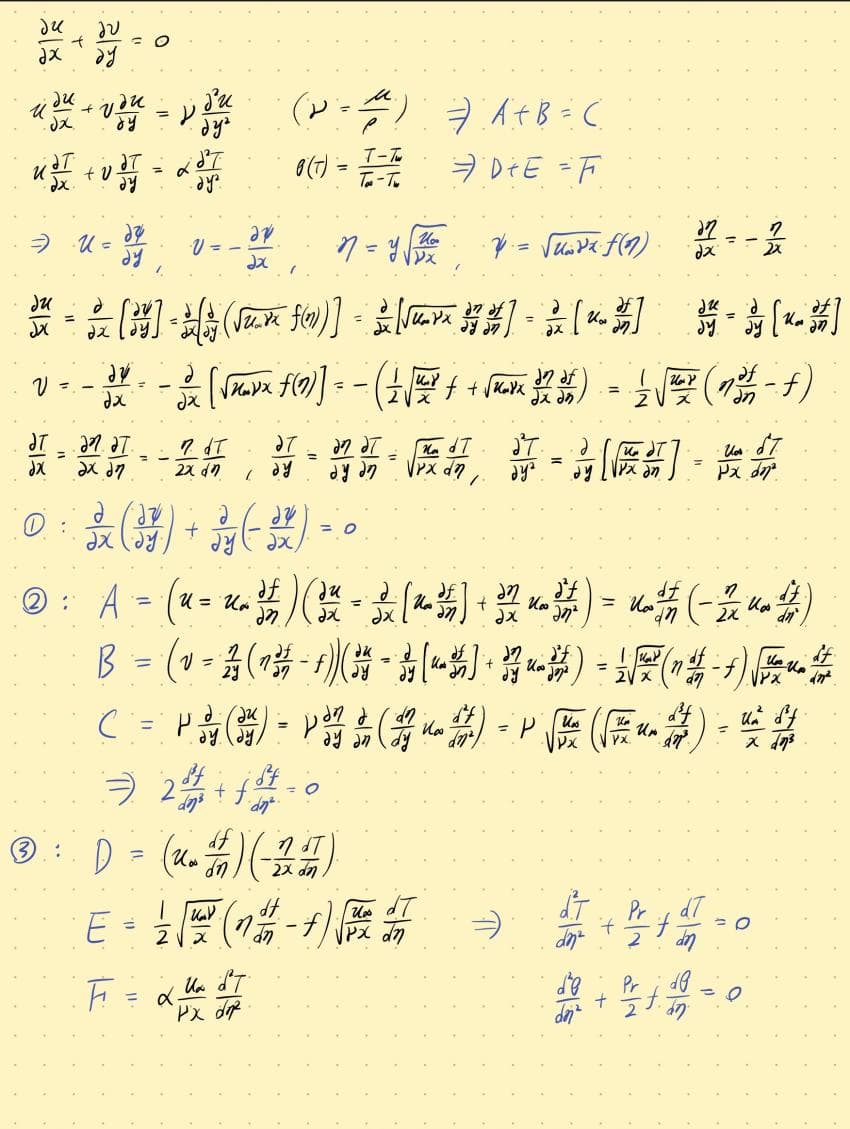 ∂u/∂x + ∂v/∂y = 0
u ∂u/∂x + v ∂u/∂y = ν ∂²u/∂y² (ν = μ/ρ) ⇒ A + B = C
u ∂T/∂x + v ∂T/∂y = α ∂²T/∂y² θ(T) = (T - Tw)/(T∞ - Tw) ⇒ D + E = F
⇒ u = ∂ψ/∂y , v = - ∂ψ/∂x , η = y √(u∞/νx) , ψ = √(u∞νx) f(η) ∂η/∂x = - η/2x
∂u/∂x = ∂/∂x [∂ψ/∂y] = ∂/∂x [∂/∂y (√(u∞νx) f(η))] = ∂/∂x [√(u∞νx) ∂η/∂y ∂f/∂η] = ∂/∂x [u∞ ∂f/∂η] ∂u/∂y = ∂/∂y [u∞ ∂f/∂η]
v = - ∂ψ/∂x = - ∂/∂x [√(u∞νx) f(η)] = - (1/2 √(u∞ν/x) f + √(u∞νx) ∂η/∂x ∂f/∂η) = 1/2 √(u∞ν/x) (η ∂f/∂η - f)
∂T/∂x = ∂η/∂x ∂T/∂η = - η/2x dT/dη , ∂T/∂y = ∂η/∂y ∂T/∂η = √(u∞/νx) dT/dη , ∂²T/∂y² = ∂/∂y [√(u∞/νx) ∂T/∂η] = u∞/νx d²T/dη²
① : ∂/∂x (∂ψ/∂y) + ∂/∂y (- ∂ψ/∂x) = 0
② : A = (u = u∞ ∂f/∂η) (∂u/∂x = ∂/∂x [u∞ ∂f/∂η] + ∂η/∂x u∞ ∂²f/∂η²) = u∞ df/dη (- η/2x u∞ d²f/dη²)
B = (v = η/2y (η ∂f/∂η - f)) (∂u/∂y = ∂/∂y [u∞ ∂f/∂η] + ∂η/∂y u∞ ∂²f/∂η²) = 1/2 √(u∞ν/x) (η df/dη - f) √(u∞/νx) u∞ d²f/dη²
C = ν ∂/∂y (∂u/∂y) = ν ∂η/∂y ∂/∂η (dη/dy u∞ d²f/dη²) = ν √(u∞/νx) (√(u∞/νx) u∞ d³f/dη³) = u∞²/x d³f/dη³
⇒ 2 d³f/dη³ + f d²f/dη² = 0
③ : D = (u∞ df/dη) (- η/2x dT/dη)
E = 1/2 √(u∞ν/x) (η df/dη - f) √(u∞/νx) dT/dη ⇒ d²T/dη² + Pr/2 f dT/dη = 0
F = α u∞/νx d²T/dη² d²θ/dη² + Pr/2 f dθ/dη = 0